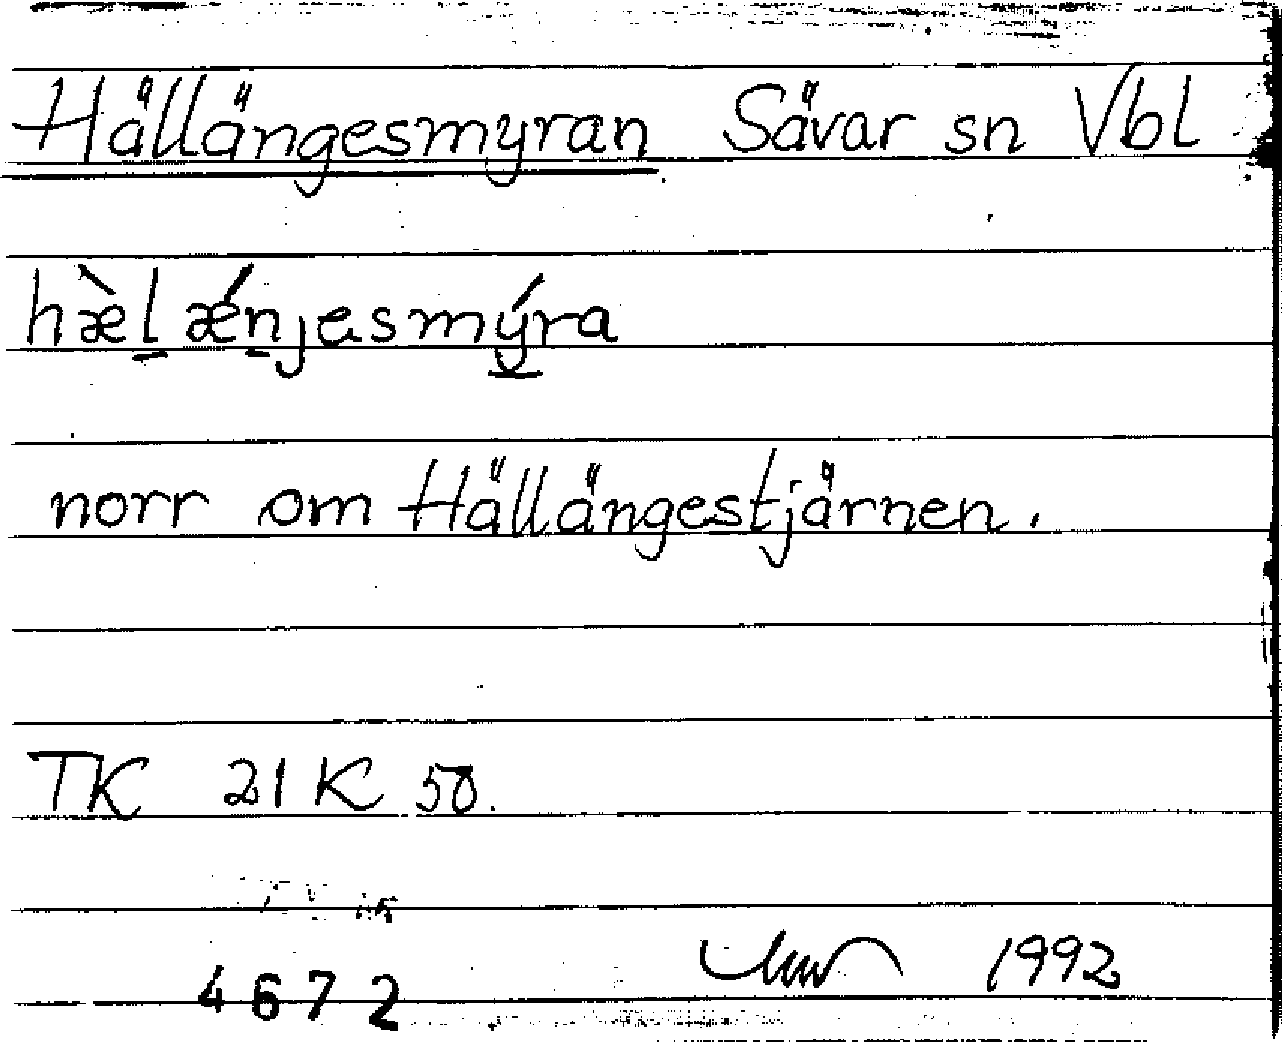 Hällängesmyran Sävar sn Vbl
hæ̀l̲ ǽn̲jesmý̲ra
norr om Hällängestjärnen.
TK 21 K 50.
1992
4672